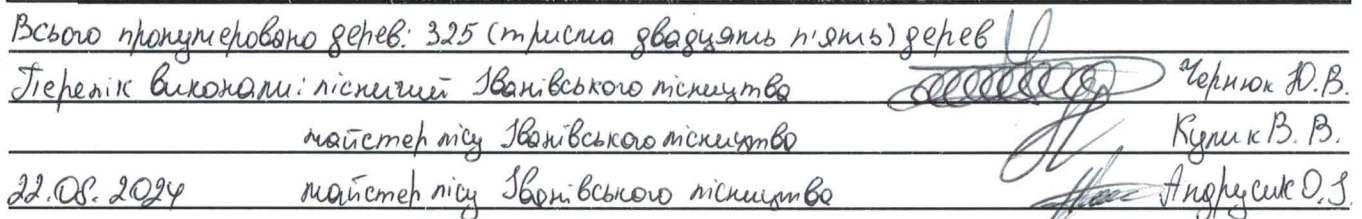 Всього пронумеровано дерев: 325 (триста двадцять п'ять) дерев
Перелік виконали: лісничий Іванівського лісництва Чернюк Ю.В.
майстер лісу Іванівського лісництва Кулик В. В.
22.08.2024 майстер лісу Іванівського лісництва Андрусик О.І.